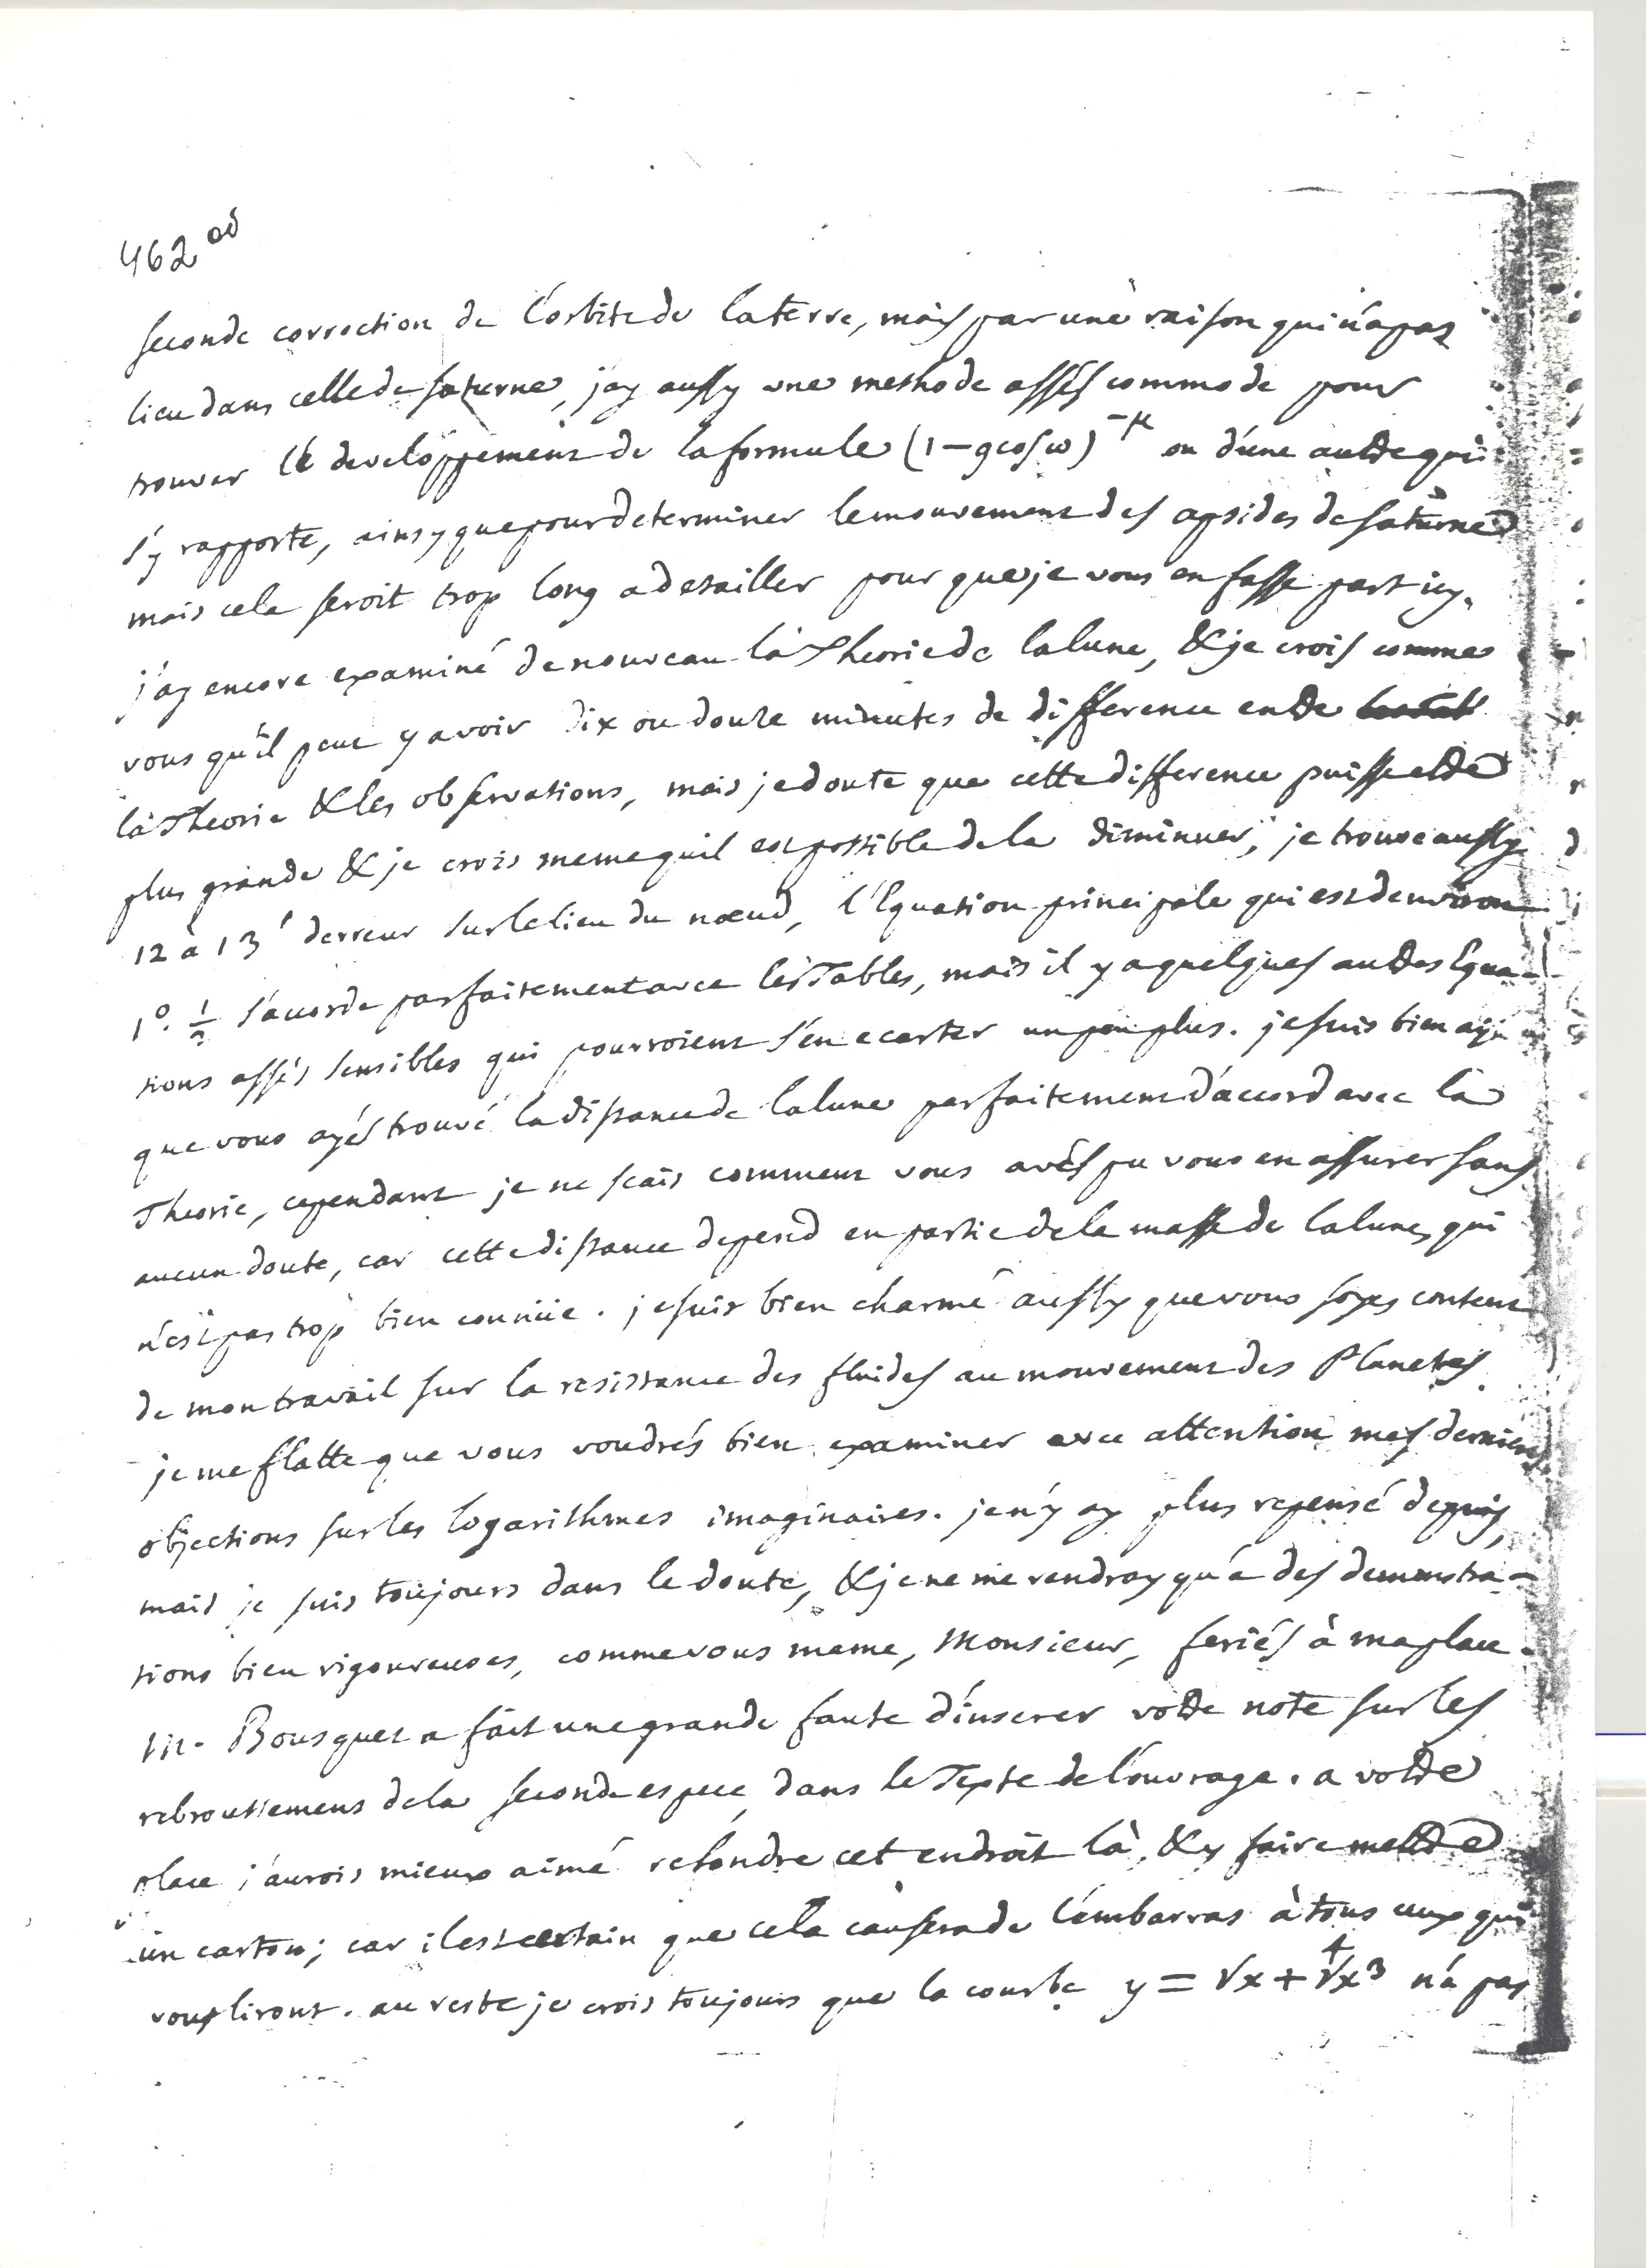 462 od
seconde correction de l'orbite de la terre, mais par une raison qui n'a pas
lieu dans celle de saturne, j'ay aussy une methode assés commode pour
trouver le developpement de la formule (1 – g cos ω)^-μ ou d'une autre qui
s'y rapporte, ainsy que pour determiner le mouvement des apsides de saturne
mais cela seroit trop long a detailler pour que je vous en fasse part icy.
j'ay encore examiné de nouveau la Theorie de la lune, & je crois comme
vous qu'il peut y avoir dix ou douze minutes de difference entre
la Theorie & les observations, mais je doute que cette difference puisse etre
plus grande & je crois meme quil est possible de la diminuer; je trouve aussy
12 à 13' derreur sur le lieu du nœud, l'Equation principale qui est denviron
1°. 1/2 s'accorde parfaitement avec les Tables, mais il y a quelques autres Equa-
tions assés sensibles qui pourroient s'en ecarter un peu plus. je suis bien
que vous ayés trouvé la distance de la lune parfaitement d'accord avec la
Theorie, cependant je ne scais comment vous avés pu vous en assurer sans
aucun doute, car cette distance depend en partie de la masse de la lune, qui
n'est pas trop bien connüe. je suis bien charmé aussy que vous soyes content
de mon travail sur la resistance des fluides au mouvement des Planetes.
je me flatte que vous voudrés bien examiner avec attention mes dernieres
objections sur les logarithmes imaginaires. je n'y ay plus repensé depuis,
mais je suis toujours dans le doute, & je ne me rendray qu'à des demonstra-
tions bien rigoureuses, comme vous meme, Monsieur, feriés à ma place.
M. Bousquet a fait une grande faute d'inserer votre note sur les
rebroussemens de la seconde espece dans le Texte de l'ouvrage. a votre
place j'aurois mieux aimé refondre cet endroit là, & y faire mettre
un carton; car il est certain que cela causera de l'embarras à tous ceux qui
vous liront. au reste je crois toujours que la courbe y = √x + ∜x³ n'a pas